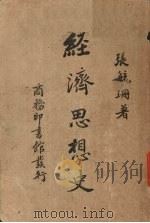 張毓珊著
経濟思想史
商務印書館發行